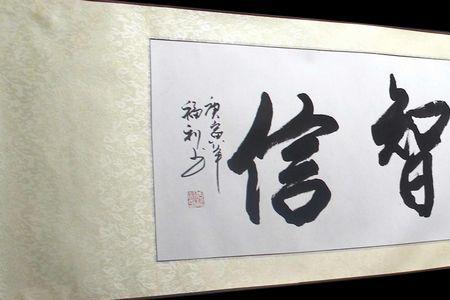 智信
庚寅年
福利书